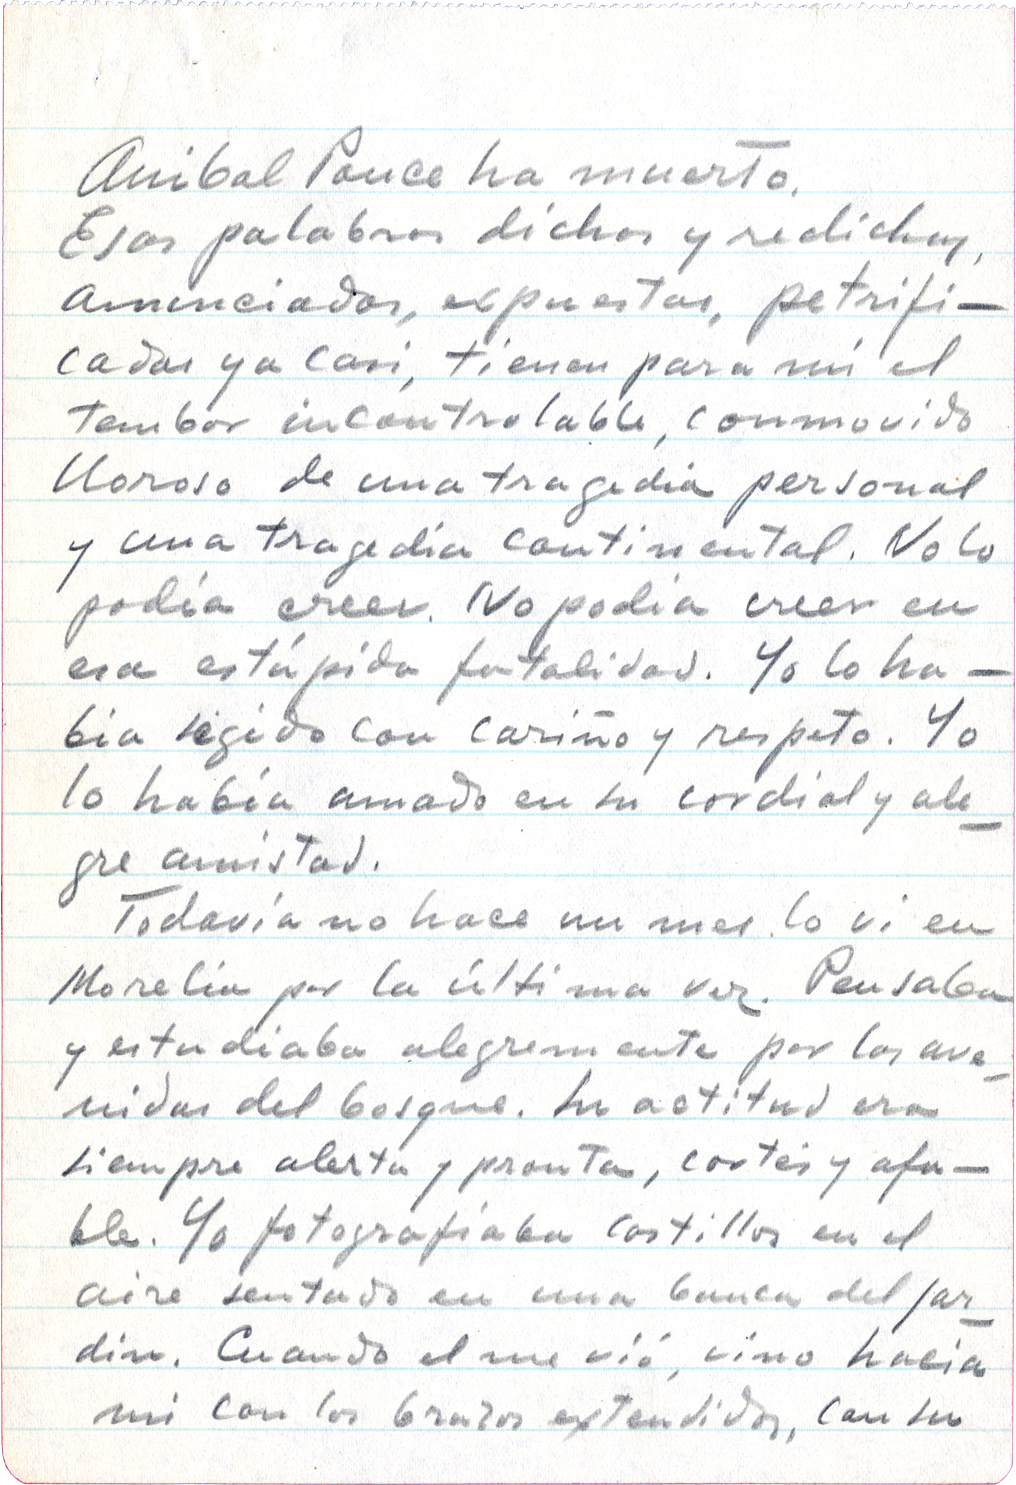 Anibal Ponce ha muerto.
Esas palabras dichas y redichas,
anunciadas, expuestas, petrifi-
cadas ya casi, tienen para mi el
temblor incontrolable, conmovido
lloroso de una tragedia personal
y una tragedia continental. No lo
podía creer. No podia creer en
esa estúpida fatalidad. Yo lo ha-
bia segido con cariño y respeto. Yo
lo había amado en su cordial y ale-
gre amistad.
Todavía no hace un mes lo vi en
Morelia por la última vez. Pensaba
y estudiaba alegremente por las ave-
nidas del bosque. Su actitud era
siempre alerta y pronta, cortés y afa-
ble. Yo fotografiaba castillos en el
aire sentado en una banca del jar-
din. Cuando el me vió, vino hacia
mi con los brazos extendidos, con su